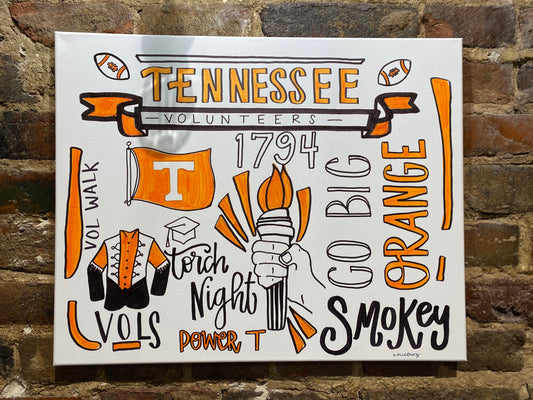 TENNESSEE
VOLUNTEERS
1794
T
VOL WALK
GO BIG
ORANGE
Torch
Night
VOLS
POWER T
SMOKEY